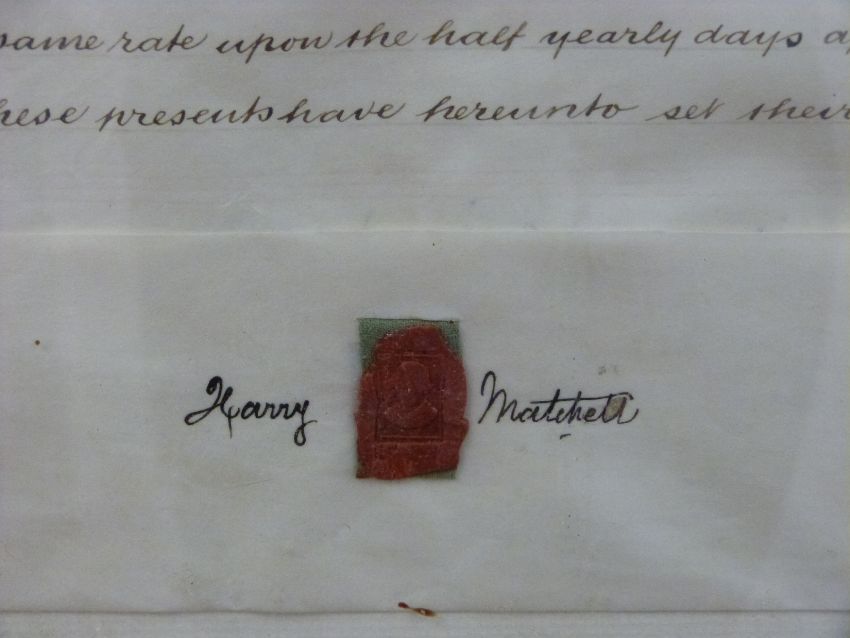 same rate upon the half yearly days
these presents have hereunto set their
Harry Matchett